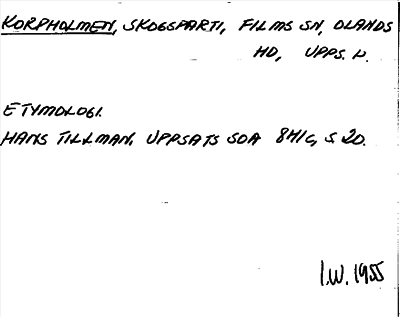 KORPHOLMEN, SKOGSPARTI, FILMS SN, OLANDS
HD, UPPS. L.
ETYMOLOGI.
HANS TILLMAN, UPPSATS SOA 8H1C, S 20.
I.W. 1955